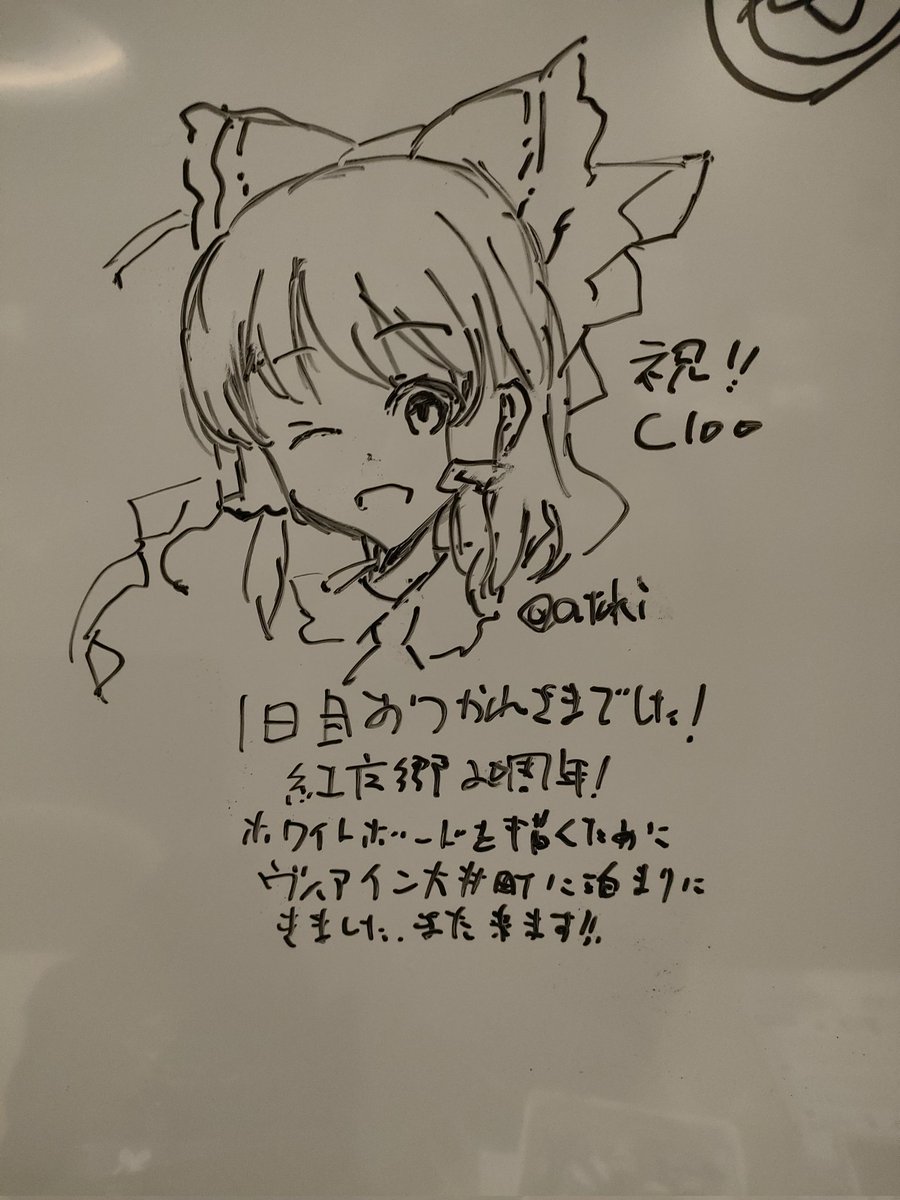 祝!!
C100
1日目おつかれさまでした!
紅魔郷20周年!
ホワイトボードを描くために
ヴィアイン大井町に泊まりに
きました.また来ます!!